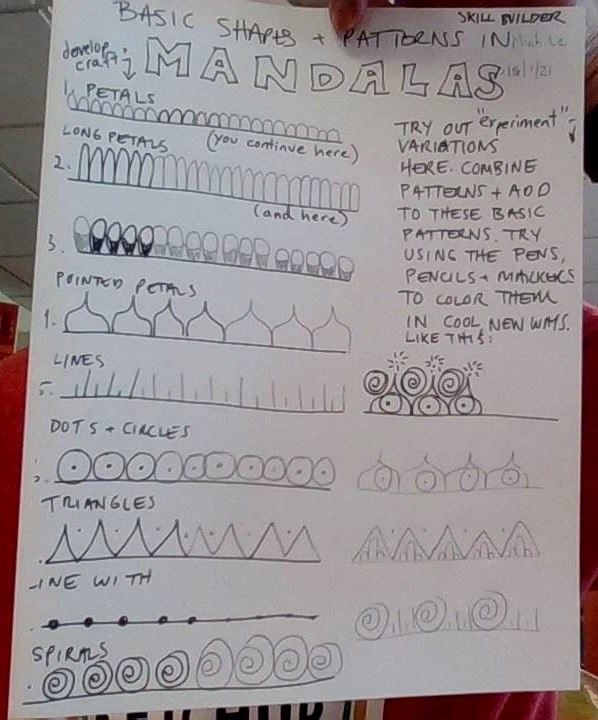 BASIC SHAPES + PATTERNS IN
SKILL BUILDER
develop craft:
MANDALAS
1. PETALS
(you continue here)
LONG PETALS
2.
(and here)
3.
POINTED PETALS
1.
LINES
DOTS + CIRCLES
TRIANGLES
-INE WITH
SPIRALS
TRY OUT "experiment"
VARIATIONS
HERE. COMBINE
PATTERNS + ADD
TO THESE BASIC
PATTERNS. TRY
USING THE PENS,
PENCILS + MARKERS
TO COLOR THEM
IN COOL, NEW WAYS.
LIKE THIS: